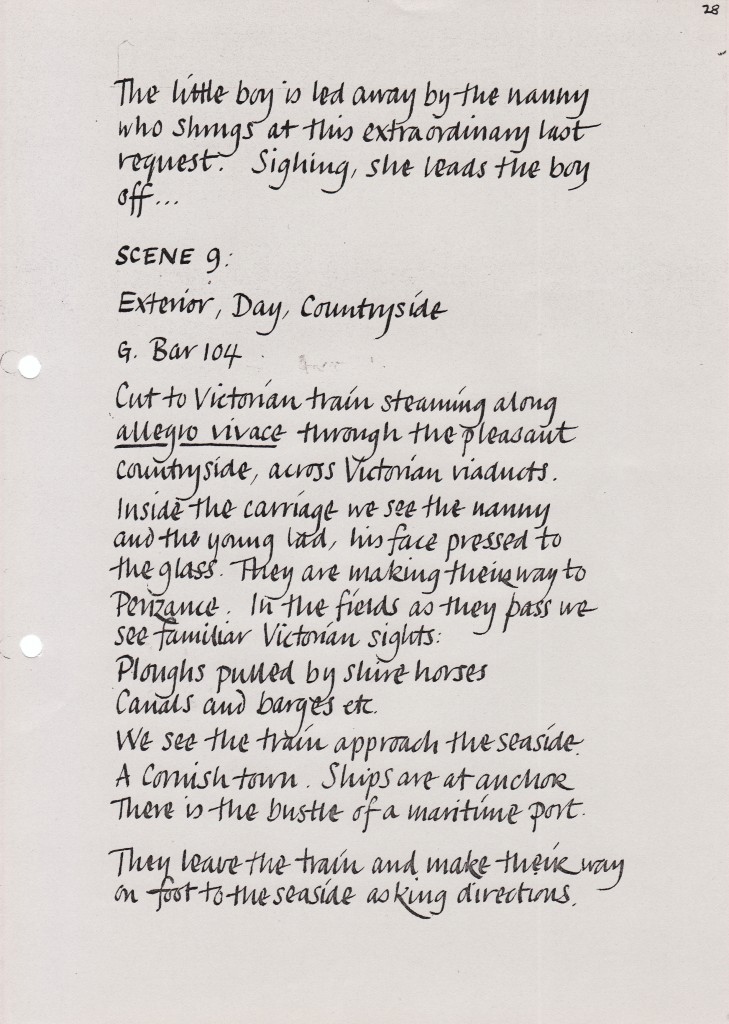 28
The little boy is led away by the nanny
who shrugs at this extraordinary last
request. Sighing, she leads the boy
off...
SCENE 9:
Exterior, Day, Countryside
G. Bar 104
Cut to Victorian train steaming along
allegro vivace through the pleasant
countryside, across Victorian viaducts.
Inside the carriage we see the nanny
and the young lad, his face pressed to
the glass. They are making their way to
Penzance. In the fields as they pass we
see familiar Victorian sights:
Ploughs pulled by shire horses
Canals and barges etc.
We see the train approach the seaside.
A Cornish town. Ships are at anchor
There is the bustle of a maritime port.
They leave the train and make their way
on foot to the seaside asking directions.